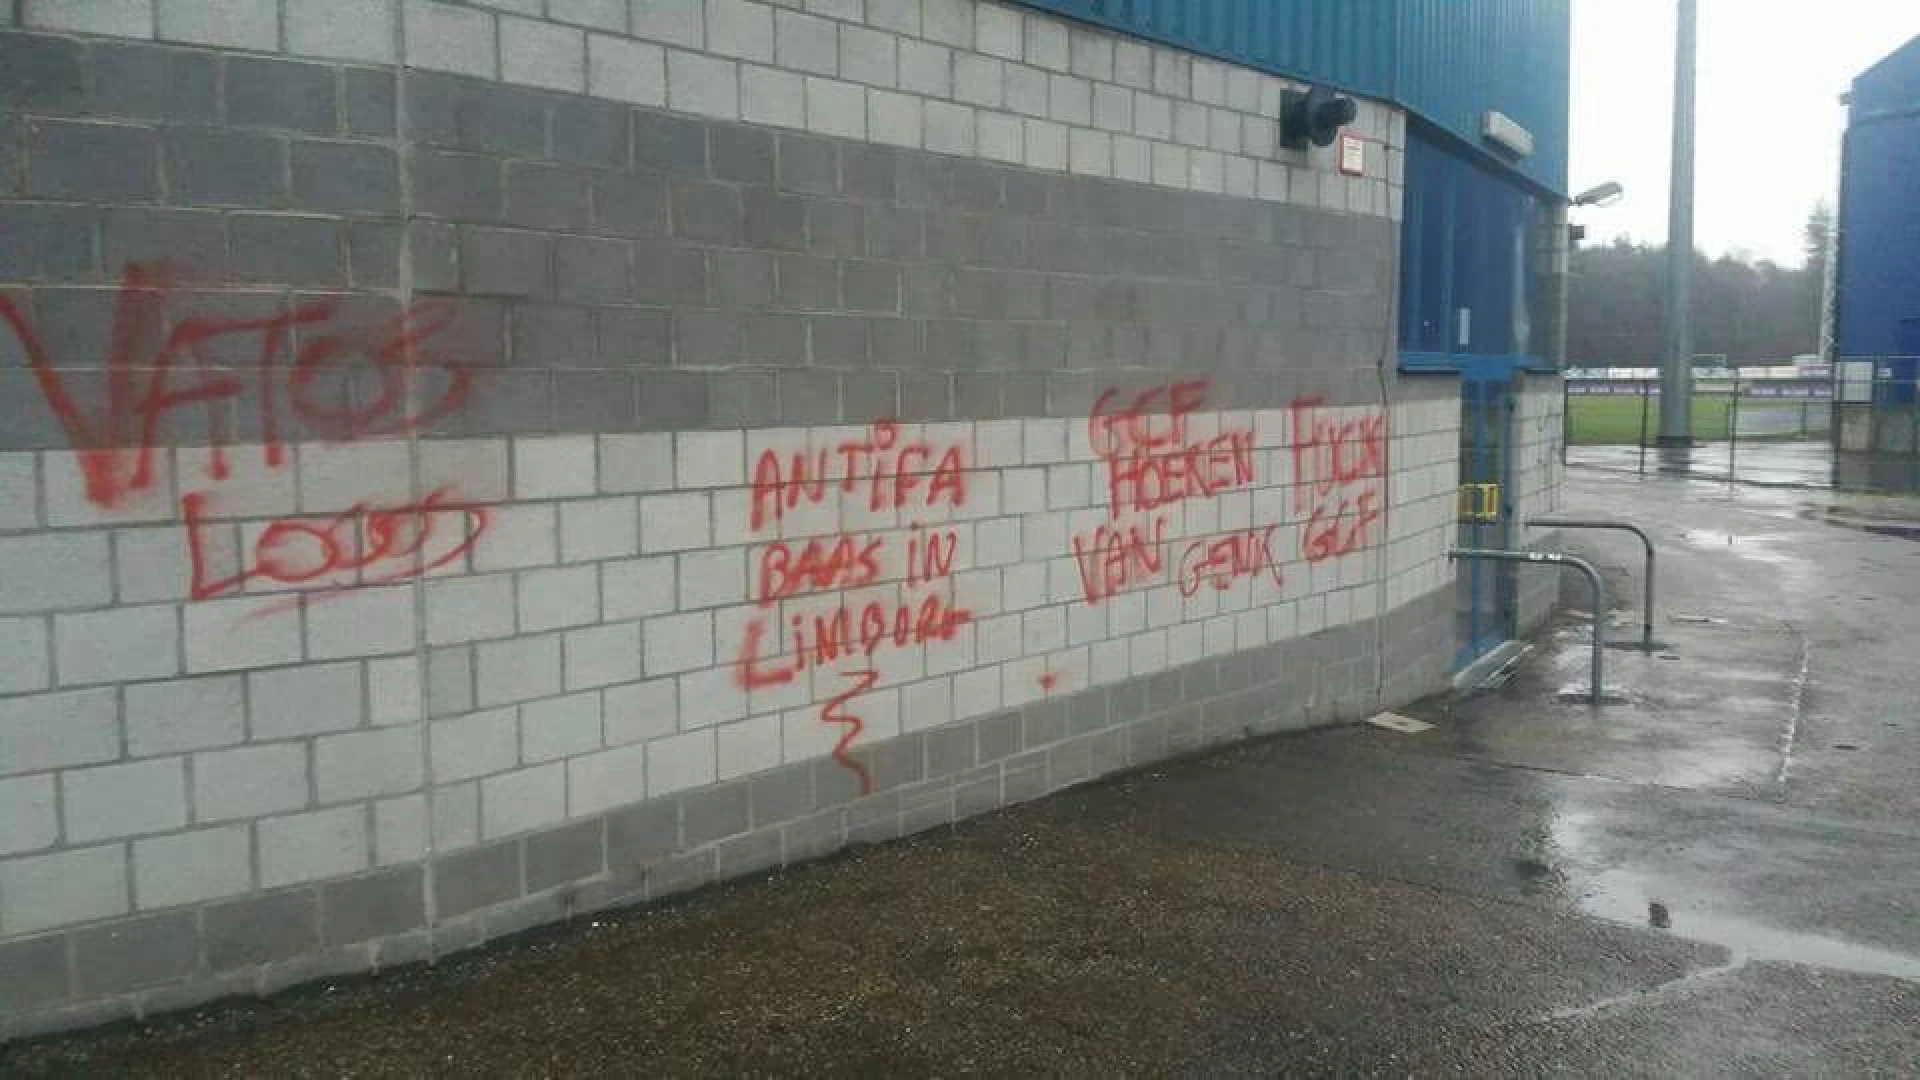 VATOS
LOCOS
ANTiFA
BAAS iN
LiMBURG
GCF
HOEREN
VAN GENK
FUCK
GCF